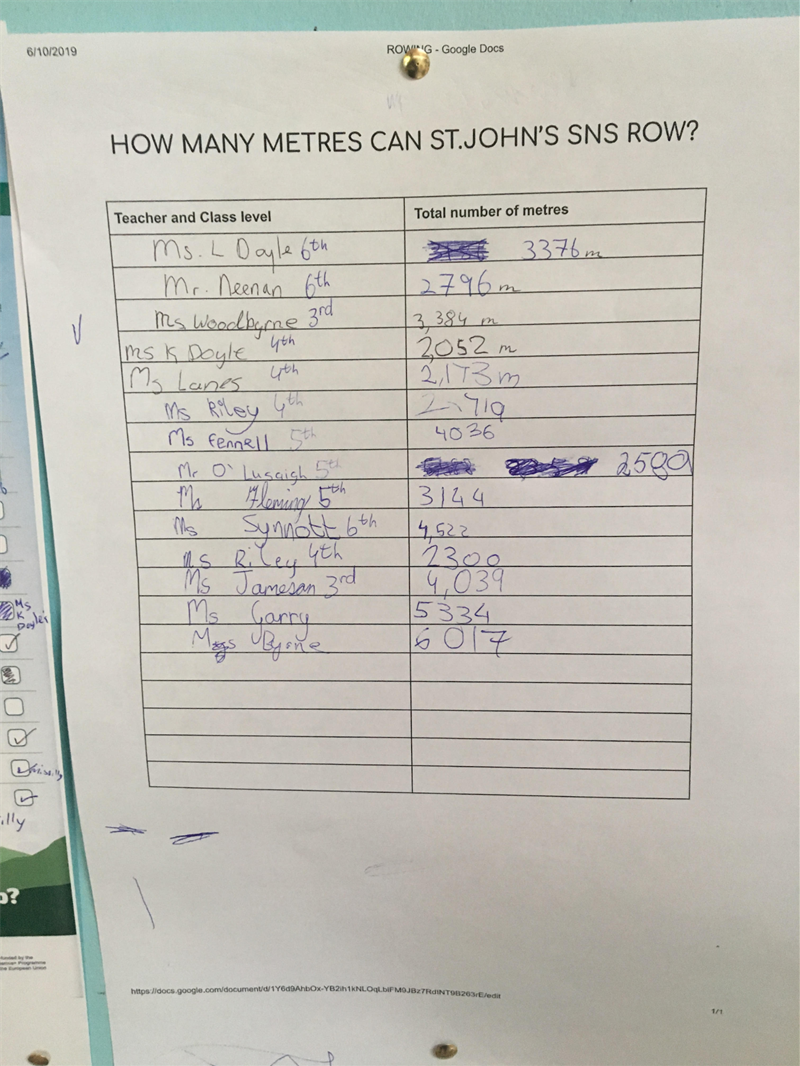 6/10/2019 ROWING - Google Docs
HOW MANY METRES CAN ST.JOHN'S SNS ROW?
Teacher and Class level Total number of metres
Ms. L Doyle 6th 3376m
Mr. Neenan 6th 2796 m
Ms Woodbyrne 3rd 3,384 m
Ms K Doyle 4th 2,052 m
Ms Lanes 4th 2,173m
Ms Riley 4th
Ms Fennell 5th 4036
Mr O' Lusaigh 5th
Ms Fleming 5th 3144
Ms Synnott 6th 4,522
Ms Riley 4th 2300
Ms Jameson 3rd 4,039
Ms Garry 5334
Byrne 6017
Ms
K
Doyle's
illy
o?
1/1